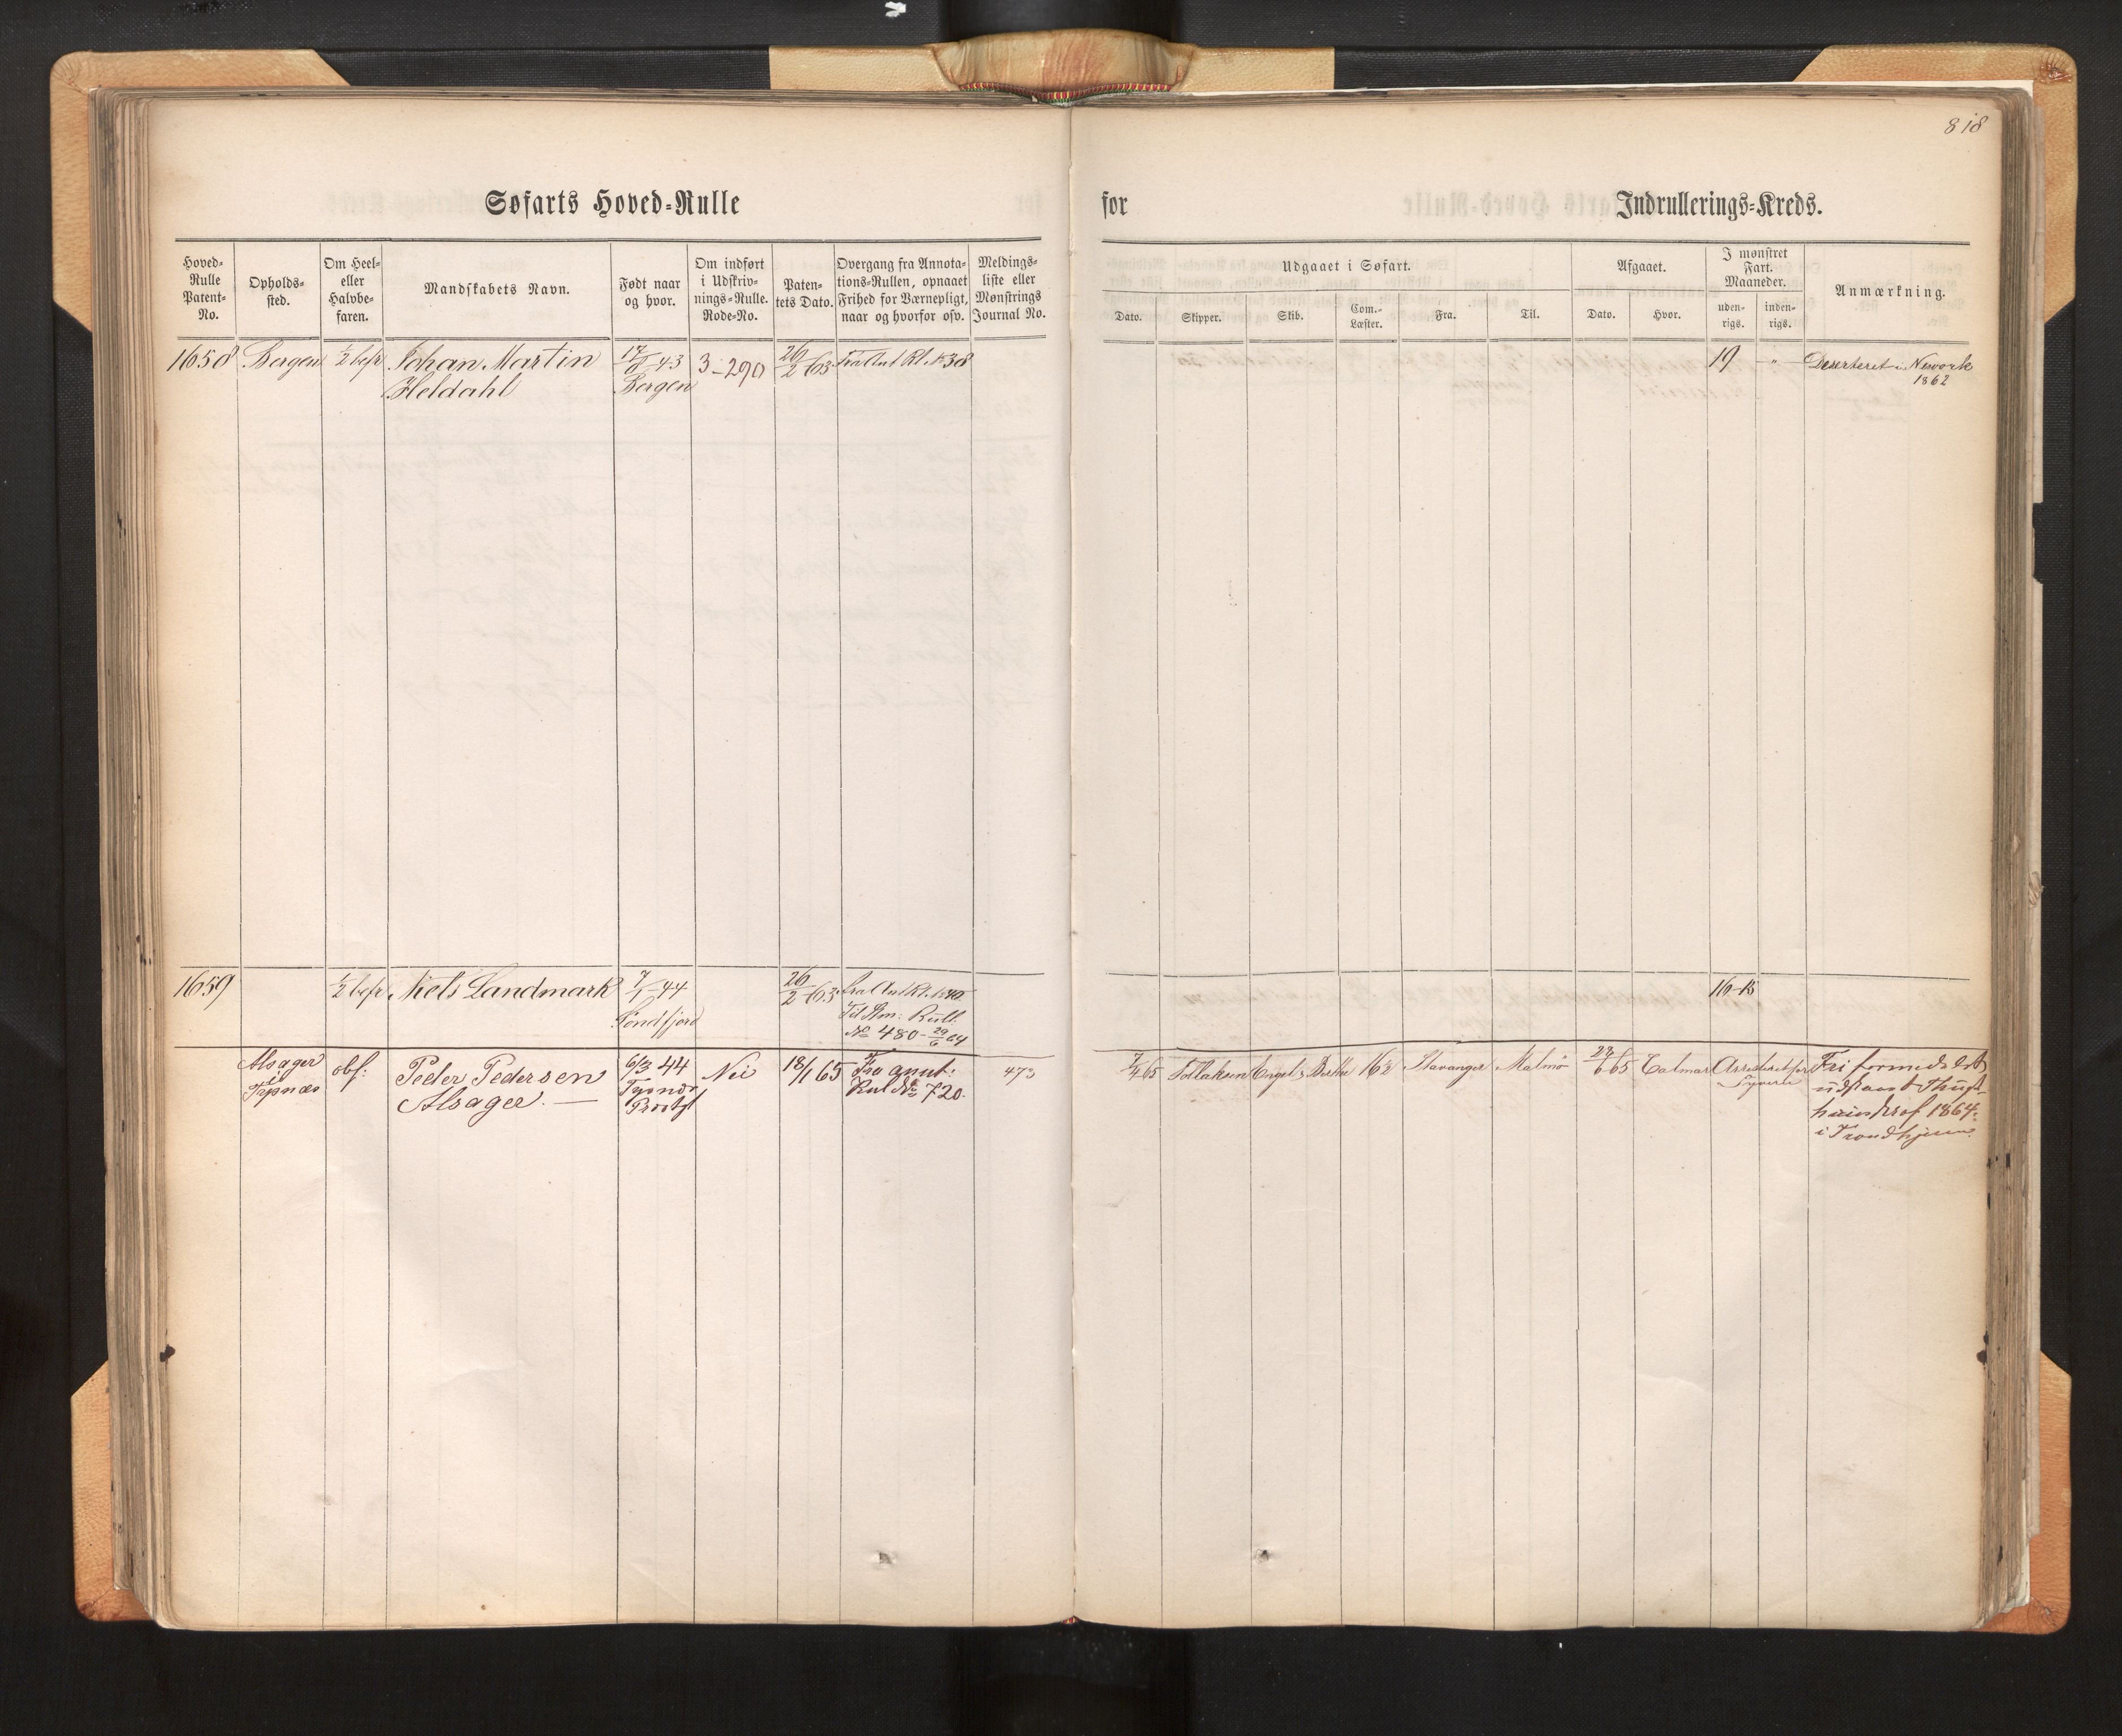 818
Søfarts Hoved-Rulle
for
Indrullerings-Kreds.
Hoved-
Rulle
Patent-
No.
Opholds-
sted.
Om Heel-
eller
Halvbe-
faren.
Mandskabets Navn.
Født naar
og hvor.
Om indført
i Udskriv-
nings-Rulle.
Rode-No.
Paten-
tets Dato.
Overgang fra Annota-
tions-Rullen, opnaaet
Frihed for Værnepligt,
naar og hvorfor osv.
Meldings-
liste eller
Mønstrings
Journal No.
Udgaaet i Søfart.
Dato.
Skipper.
Skib.
Com.-
Læster.
Fra.
Til.
Afgaaet.
Dato.
Hvor.
I mønstret
Fart.
Maaneder.
uden-
rigs.
inden-
rigs.
Anmærkning.
1658 Bergen ½ befr Johan Martin 43 3-290 26/2 63 Fra Ant Rl. No 38
Heldahl Bergen
19 " Deserteret i Nework
1862
1659 ½ befr Niels Landmark 7/1 44 26/2 63 fra Ant Rl. No 40
Söndfjord
Rull.
No 480 - 29/6 64
16 15
Alsager
i
Tysnæs
obf:
Peder Pedersen
Alsager. —
6/3 44
Tysnæs
Prestgl
Nei
18/1 65
Fra annt:
Rul No 720.
473
7/4 65 Engel Berthe 162 Stavanger Malmö 23/6 65 Calmar Arresteret for
Tyverie
Fri formedelst
udstaaet Thugt-
huusstraf 1864.
i Trondhjem.